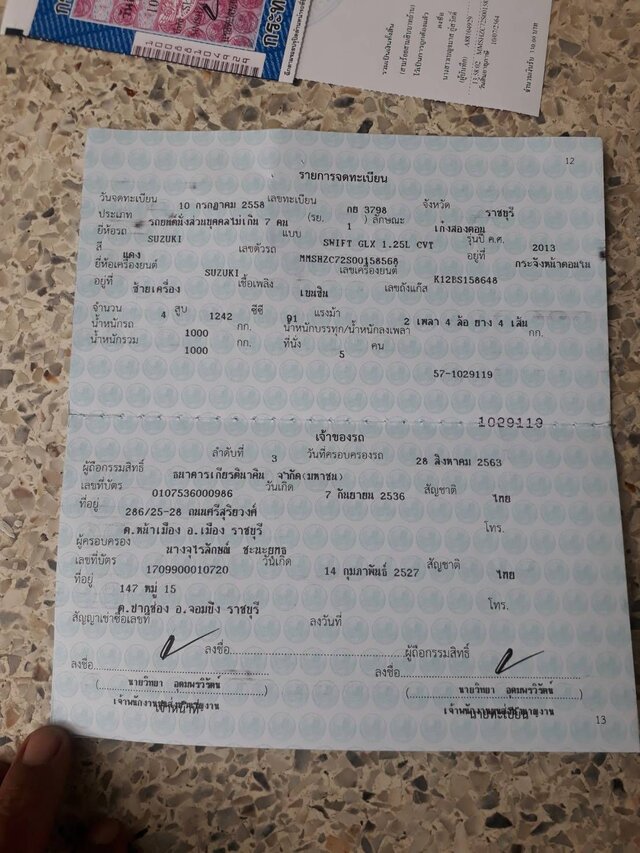 12
รายการจดทะเบียน
วันจดทะเบียน 10 กรกฎาคม 2558 เลขทะเบียน กย 3798 จังหวัด ราชบุรี
ประเภท รถยนต์นั่งส่วนบุคคลไม่เกิน 7 คน (รย. 1 ) ลักษณะ เก๋งสองตอน
ยี่ห้อรถ SUZUKI แบบ SWIFT GLX 1.25L CVT รุ่นปี ค.ศ. 2013
สี แดง เลขตัวรถ MMSHZC72S00158568 อยู่ที่ กระจังหน้าตอนใน
ยี่ห้อเครื่องยนต์ SUZUKI เลขเครื่องยนต์ K12BS158648
อยู่ที่ ซ้ายเครื่อง เชื้อเพลิง เบนซิน เลขถังแก๊ส
จำนวน 4 สูบ 1242 ซีซี 91 แรงม้า 2 เพลา 4 ล้อ ยาง 4 เส้น
น้ำหนักรถ 1000 กก. น้ำหนักบรรทุก/น้ำหนักลงเพลา กก.
น้ำหนักรวม 1000 กก. ที่นั่ง 5 คน
57-1029119
1029119
เจ้าของรถ
ลำดับที่ 3 วันที่ครอบครองรถ 28 สิงหาคม 2563
ผู้ถือกรรมสิทธิ์ ธนาคารเกียรตินาคิน จำกัด(มหาชน)
เลขที่บัตร 0107536000986 วันเกิด 7 กันยายน 2536 สัญชาติ ไทย
ที่อยู่ 286/25-28 ถนนศรีสุริยวงศ์
ต.หน้าเมือง อ.เมือง ราชบุรี โทร.
ผู้ครอบครอง นางจุไรลักษณ์ ชะนะยุทธ
เลขที่บัตร 1709900010720 วันเกิด 14 กุมภาพันธ์ 2527 สัญชาติ ไทย
ที่อยู่ 147 หมู่ 15
ต.ปากช่อง อ.จอมบึง ราชบุรี โทร.
สัญญาเช่าซื้อเลขที่ ลงวันที่
ลงชื่อ ผู้ถือกรรมสิทธิ์
ลงชื่อ ลงชื่อ
( นายวิทยา อุดมพรวิรัตน์ ) ( นายวิทยา อุดมพรวิรัตน์ )
เจ้าหน้าที่ นายทะเบียน
13